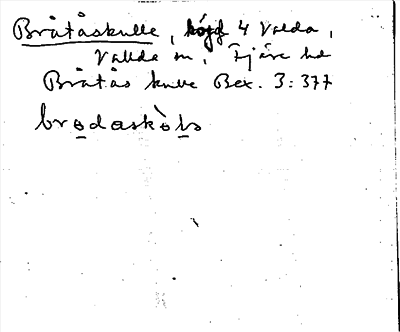 Bråtåskulle, höjd 4 Valda,
Vallda sn, Fjäre hd
Bråtås kulle Bex. 3:377
brodaskòls